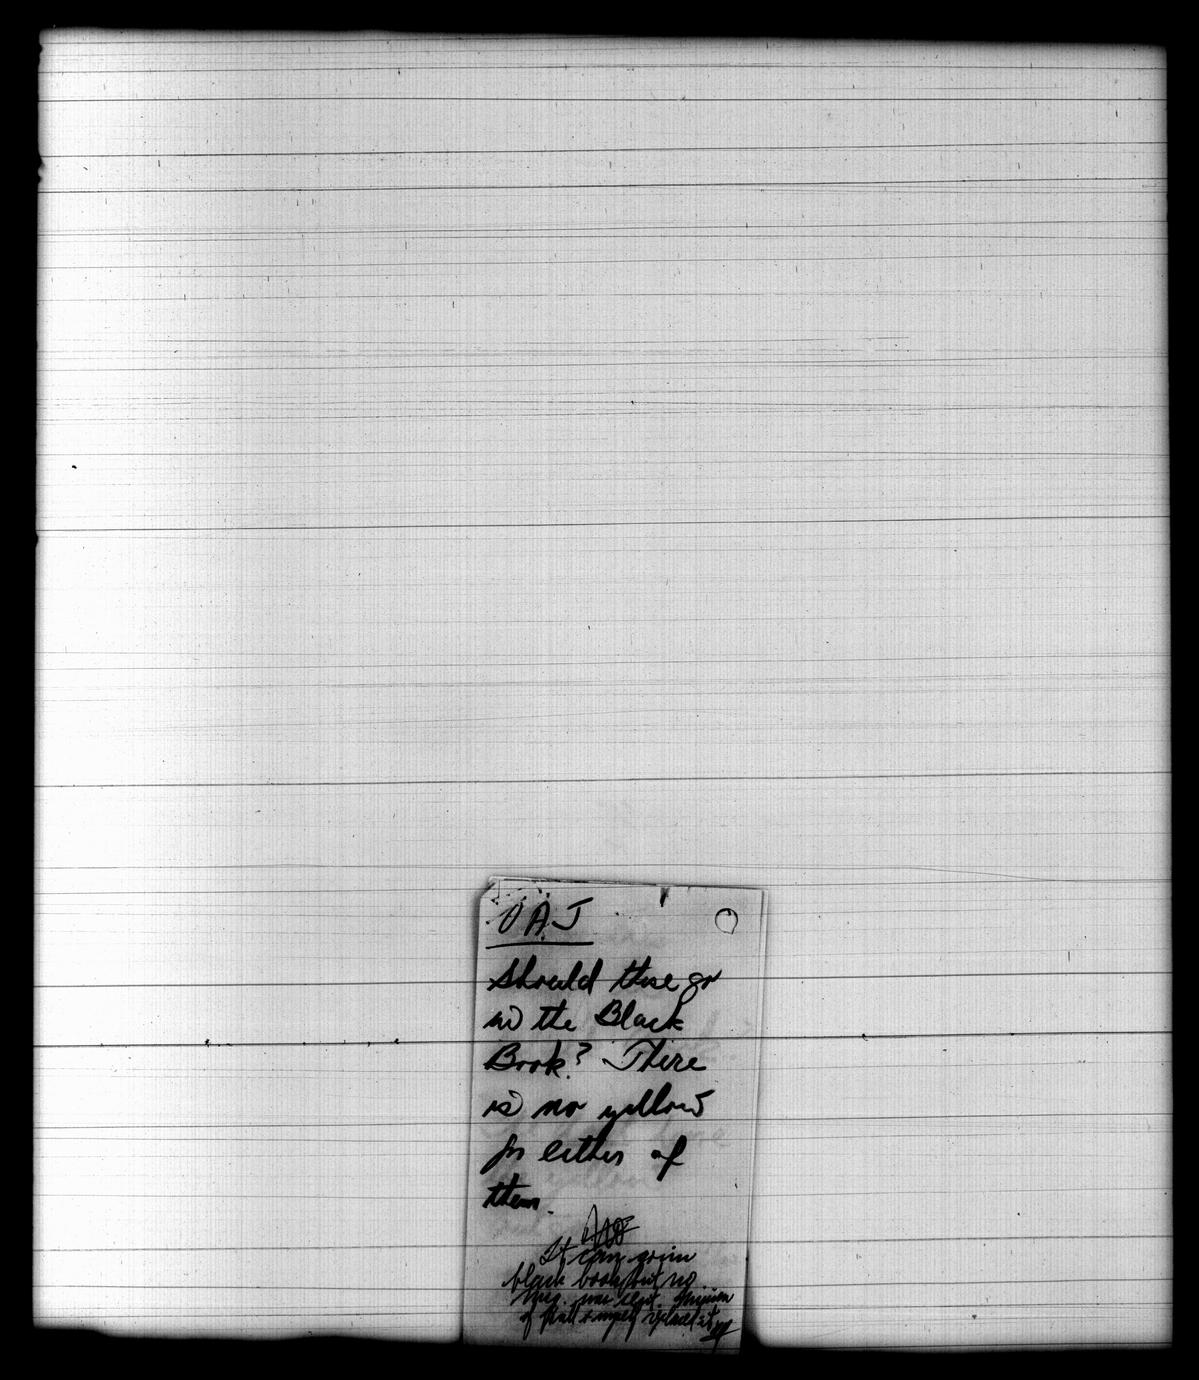 OAJ
Should these go
in the Black
Book? There
is no yellow
for either of
them.
It can go in
black book but no
was sent.
of simply